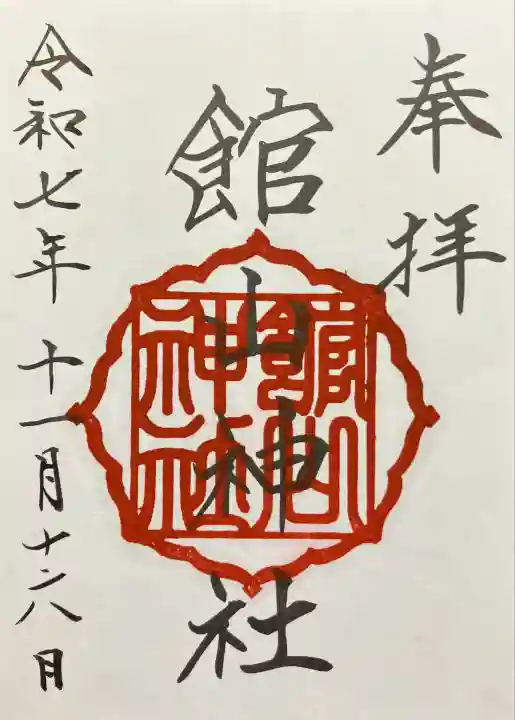 奉拝
館山神社
館山
神社
令和七年十一月十六日